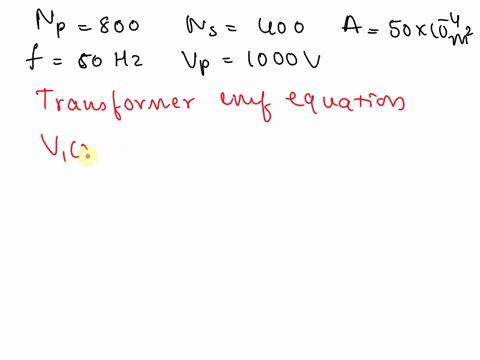 Np = 800 Ns = 400 A = 50 × 10⁻⁴ m²
f = 50 Hz Vp = 1000 V
Transformer emf equation
V₁(